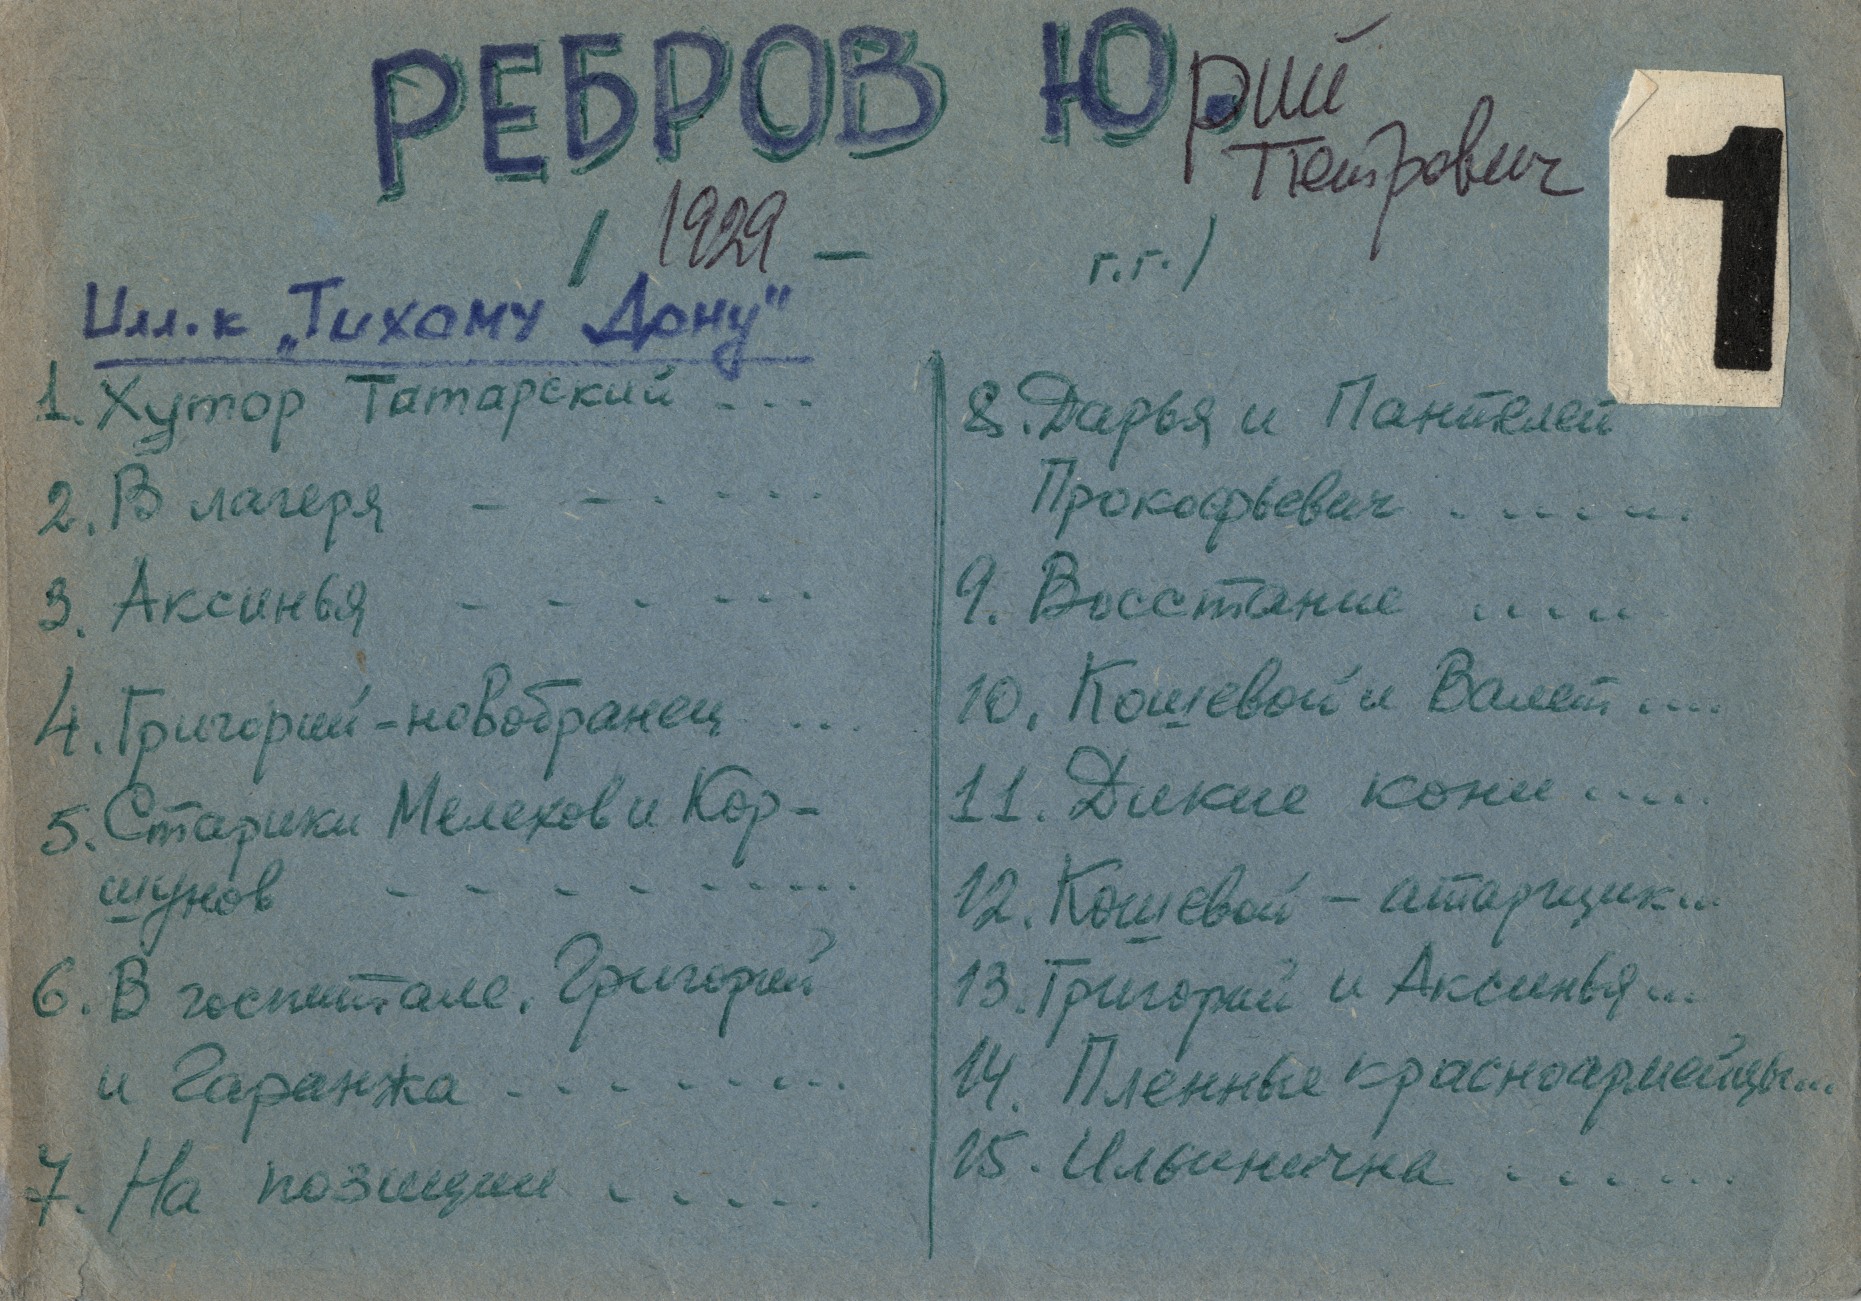 РЕБРОВ Юрий
Петрович
/ 1929 — г.г./
1
Илл. к „Тихому Дону"
1. Хутор Татарский ...
2. В лагеря - - - - - -
3. Аксинья - - - - - -
4. Григорий-новобранец ...
5. Старики Мелехов и Кор-
шунов - - - - - - - - -
6. В госпитале. Григорий
и Гаранжа - - - - - - - -
7. На позиции . . . . .
8. Дарья и Пантелей
Прокофьевич . . . . . .
9. Восстание . . . . .
10. Кошевой и Валет ....
11. Дикие кони .....
12. Кошевой - атарщик...
13. Григорий и Аксинья...
14. Пленные красноармейцы...
15. Ильинична . . . . . .